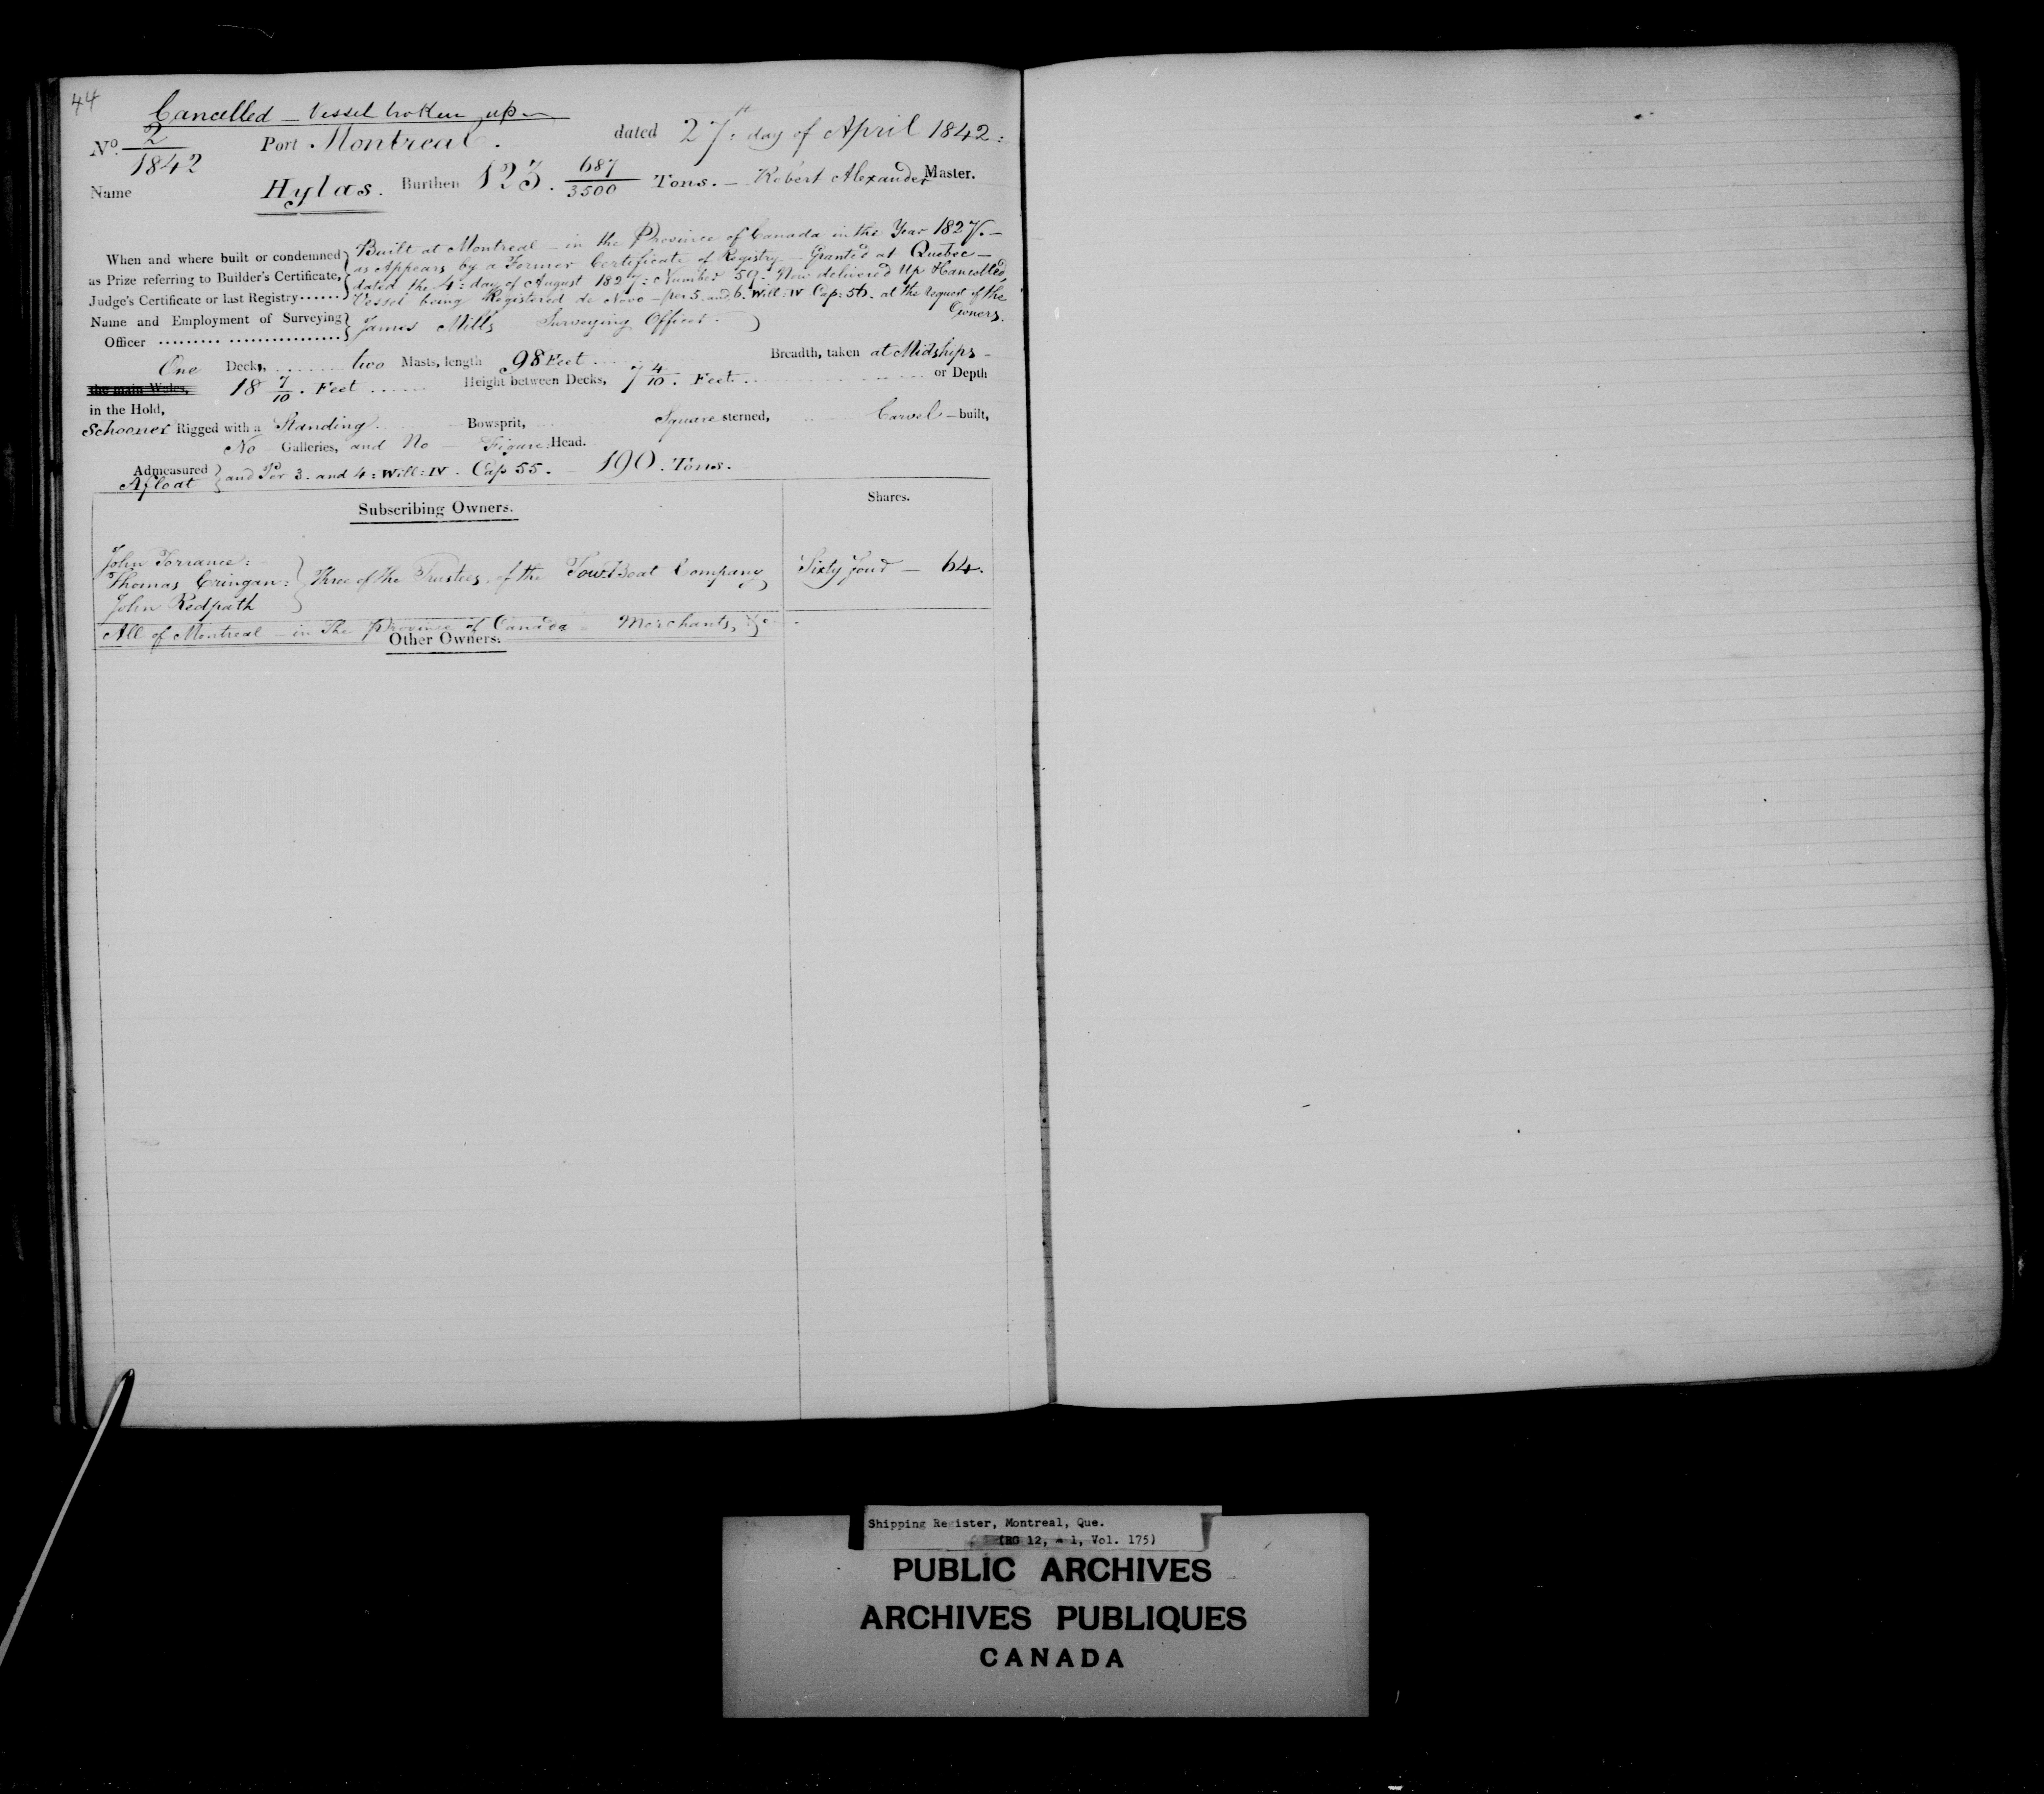 44
Cancelled — Vessel broken up
No. 2/1842 Port Montreal. dated 27th day of April 1842:
Name Hylas. Burthen 123. 687/3500 Tons. — Robert Alexander Master.
When and where built or condemned as Prize referring to Builder's Certificate, Judge's Certificate or last Registry......
Built at Montreal — in the Province of Canada in the Year 1827. —
as Appears by a Former Certificate of Registry — Granted at Quebec —
dated the 4: day of August 1827: Number 59. Now delivered Up & Cancelled,
Vessel being Registered de Novo — per 5. and 6. Will: IV Cap: 56. at the request of the
Owners.
Name and Employment of Surveying Officer
James Mills — Surveying Officer.
One Decks, two Masts, length 98 Feet Breadth, taken at Midships -
the main Wales, 18 7/10. Feet Height between Decks, 7 4/10. Feet. or Depth
in the Hold,
Schooner Rigged with a Standing Bowsprit, Square sterned, Carvel — built,
No — Galleries, and No — Figure Head.
Admeasured Afloat } and Per 3. and 4: Will: IV. Cap 55. — 190. Tons.
Subscribing Owners. Shares.
John Torrance:
Thomas Cringan: } Three of the Trustees, of the Tow Boat Company Sixty four — 64.
John Redpath
All of Montreal — in The Province of Canada - Merchants, &c.
Other Owners.
Shipping Register, Montreal, Que.
(RG 12, A 1, Vol. 175)
PUBLIC ARCHIVES
ARCHIVES PUBLIQUES
CANADA